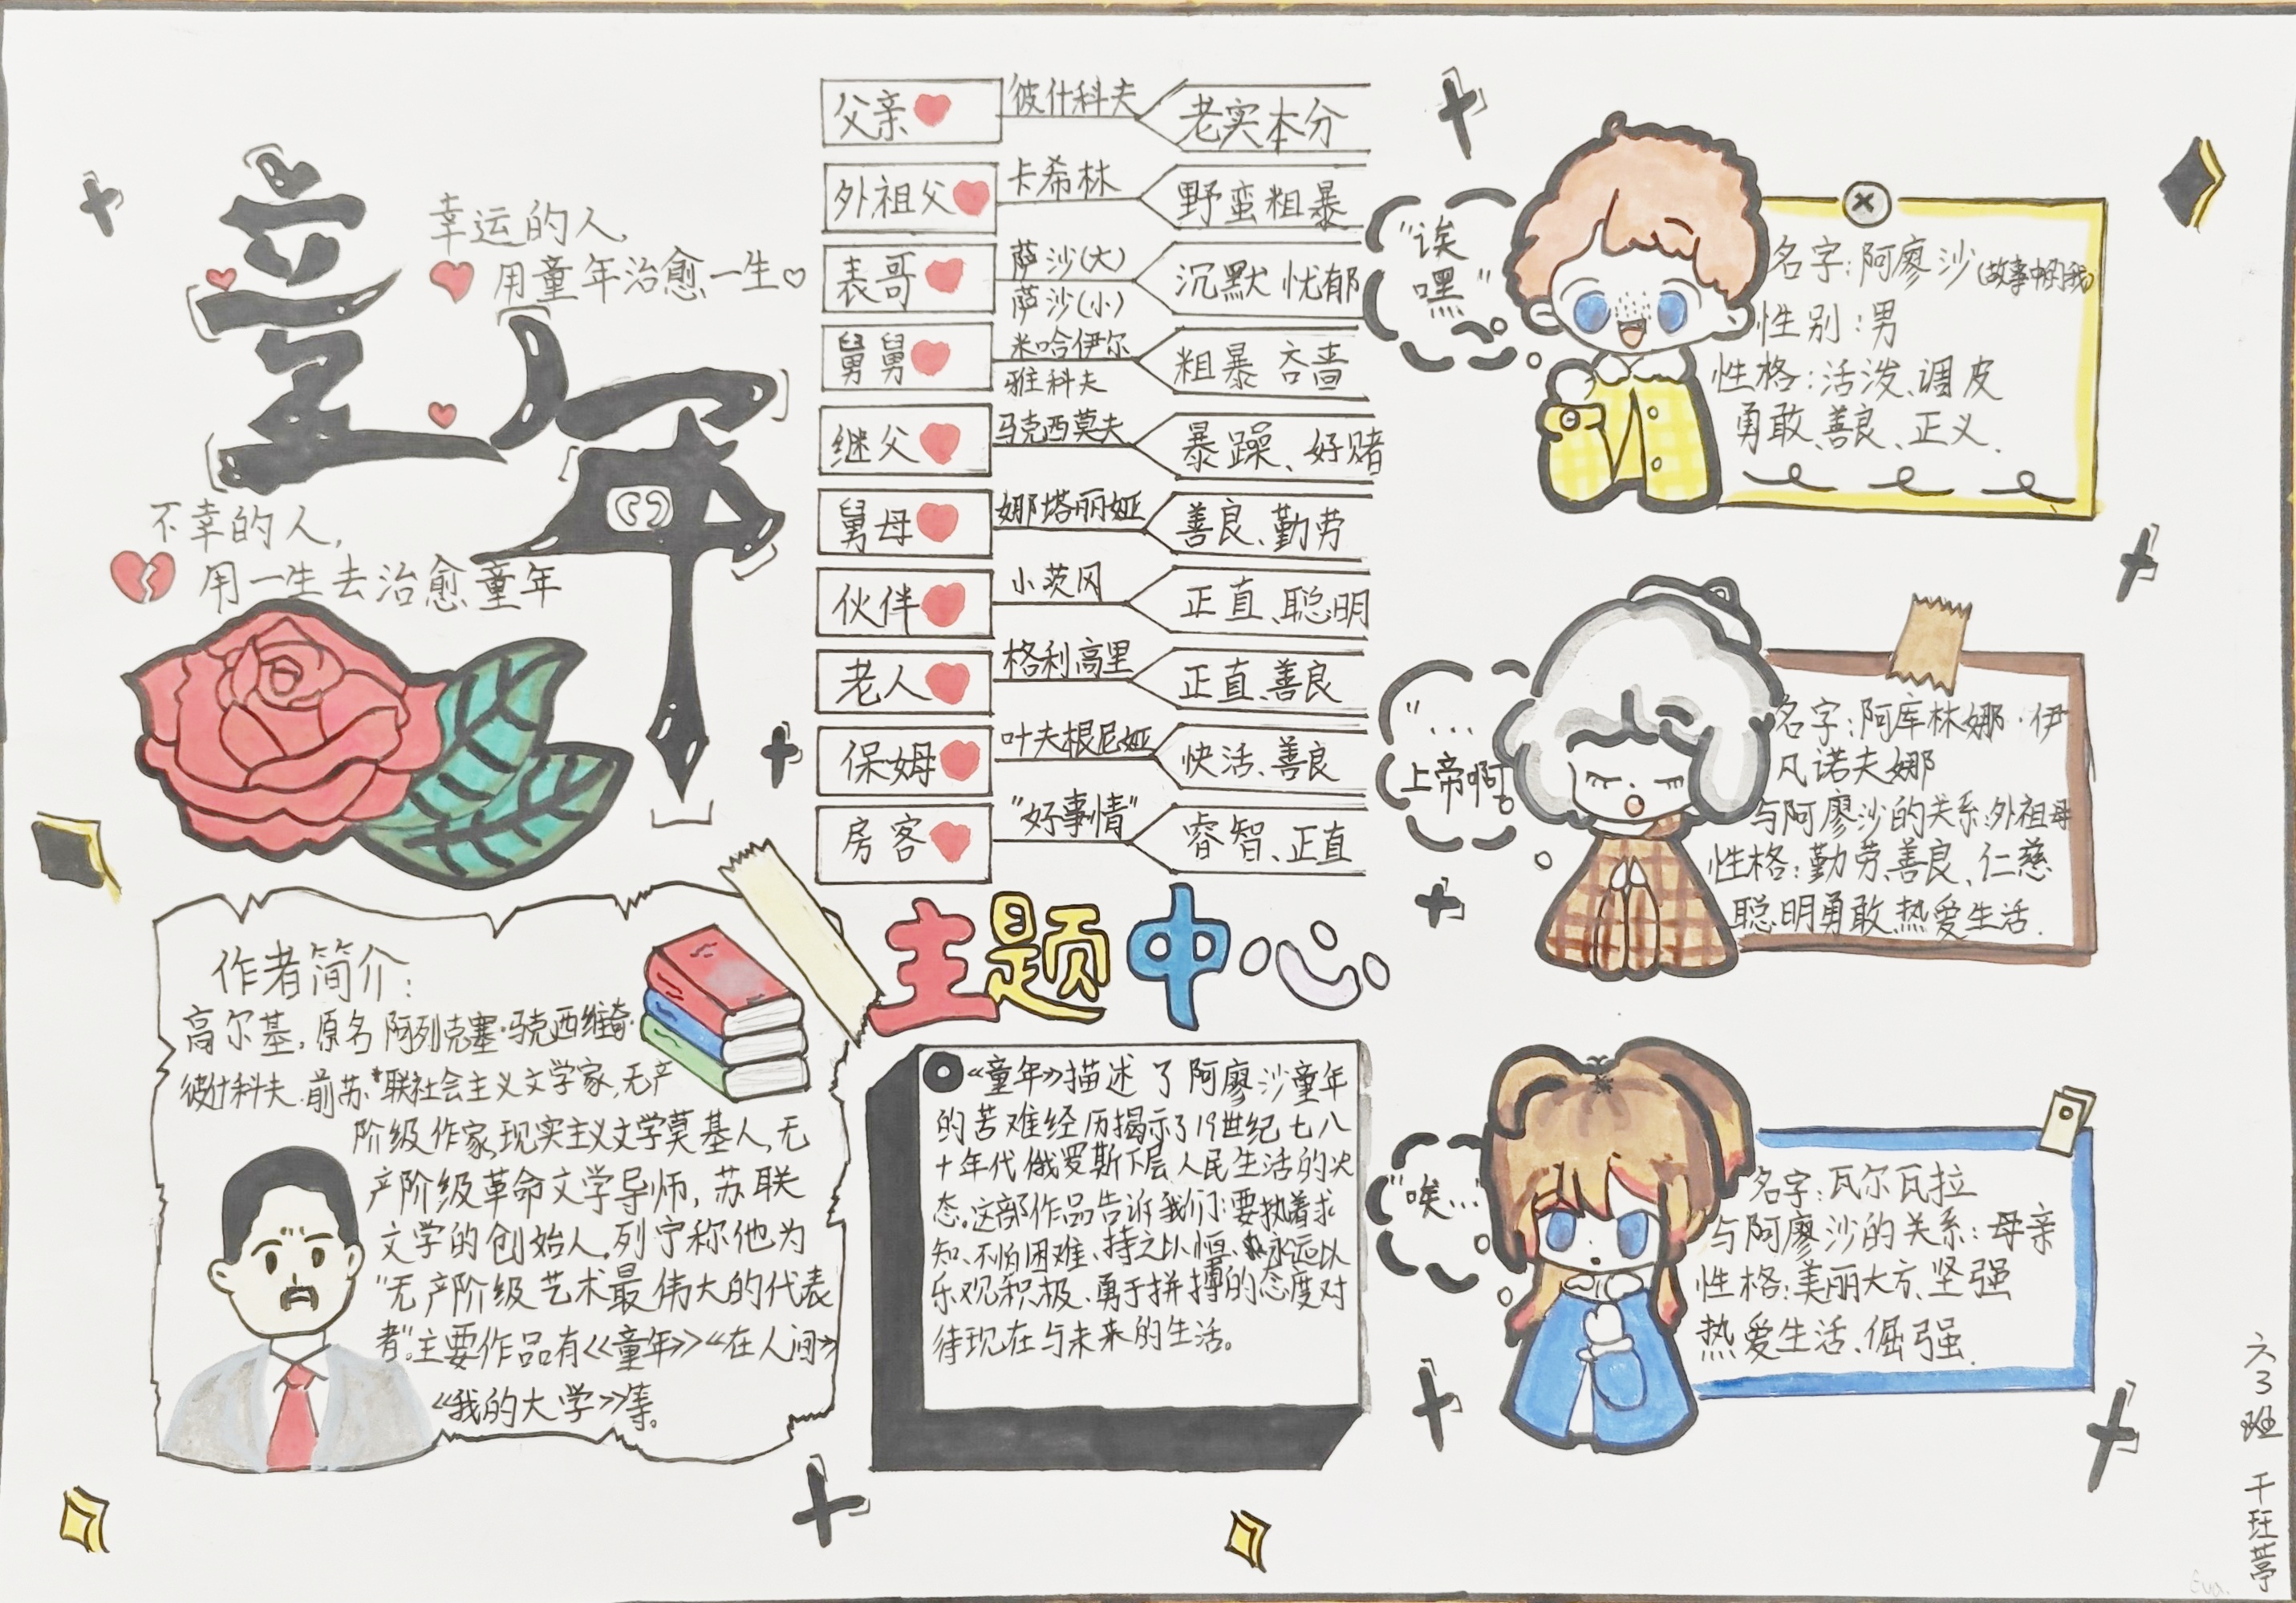 童年
幸运的人,
用童年治愈一生
不幸的人,
用一生去治愈童年
作者简介:
高尔基,原名阿列克塞·马克西维奇·
彼什科夫.前苏联社会主义文学家,无产
阶级作家,现实主义文学莫基人,无
产阶级革命文学导师,苏联
文学的创始人,列宁称他为
"无产阶级艺术最伟大的代表
者".主要作品有《童年》《在人间》
《我的大学》等。
父亲 彼什科夫 老实本分
外祖父 卡希林 野蛮粗暴
表哥 萨沙(大) 萨沙(小) 沉默 忧郁
舅舅 米哈伊尔 雅科夫 粗暴 吝啬
继父 马克西莫夫 暴躁、好赌
舅母 娜塔丽娅 善良、勤劳
伙伴 小茨冈 正直、聪明
老人 格利高里 正直、善良
保姆 叶夫根尼娅 快活、善良
房客 "好事情" 睿智、正直
主题中心
《童年》描述了阿廖沙童年
的苦难经历揭示了19世纪七八
十年代俄罗斯下层人民生活的状
态。这部作品告诉我们:要执着求
知、不怕困难、持之以恒、永远以
乐观积极、勇于拼搏的态度对
待现在与未来的生活。
"诶
嘿"
名字:阿廖沙(故事中的我)
性别:男
性格:活泼、调皮
勇敢、善良、正义.
"...
上帝啊"
名字:阿库林娜·伊
凡诺夫娜
与阿廖沙的关系:外祖母
性格:勤劳、善良、仁慈
聪明勇敢、热爱生活.
"唉..."
名字:瓦尔瓦拉
与阿廖沙的关系:母亲
性格:美丽大方、坚强
热爱生活、倔强.
六3班